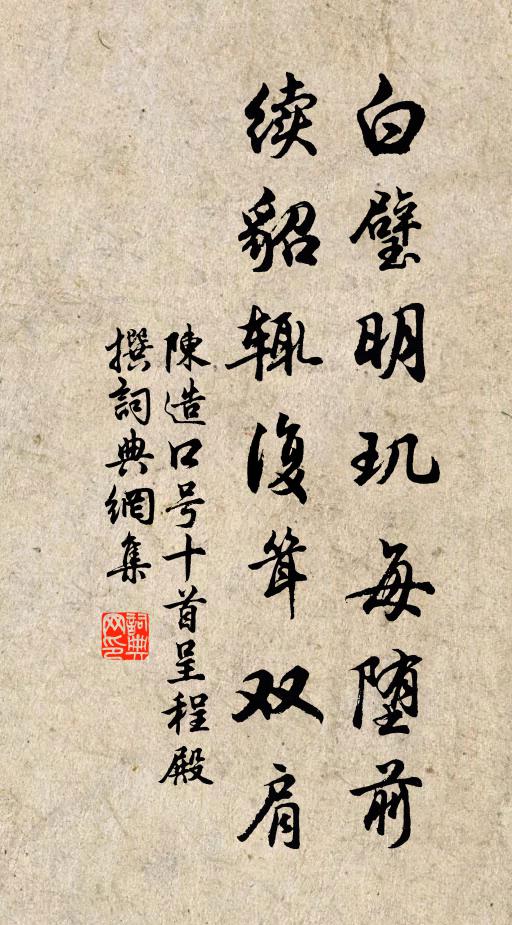 白璧明玑每堕前
续貂辄复耸双肩
陳造口号十首呈程殿
撰詞典網集
詞典网印